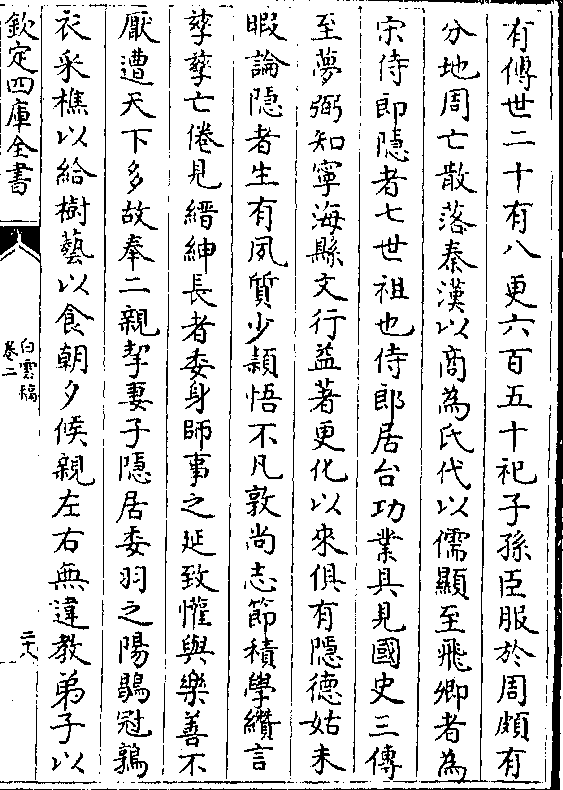 有傳世二十有八更六百五十祀子孫臣服於周頗有
分地周亡散落秦漢以商為氏代以儒顯至飛卿者為
宋侍郎隱者七世祖也侍郎居台功業具見國史三傳
至夢弼知寧海縣文行益著更化以來俱有隱德姑未
暇論隱者生有夙質少穎悟不凡敦尚志節積學纘言
孳孳亡倦見縉紳長者委身師事之延致懽與樂善不
厭遭天下多故奉二親挈妻子隱居委羽之陽鶡冠鶉
衣采樵以給樹藝以食朝夕候親左右無違教弟子以
欽定四庫全書
白雲稿
卷二
二八